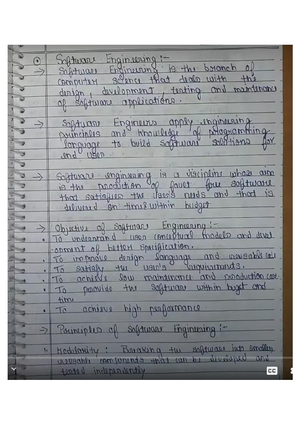 Software Engineering :-
→ Software Engineering is the branch of
computer science that deals with the
design, development, testing and maintenance
of software applications.
→ Software Engineers apply engineering
principles and knowledge of programming
language to build software solutions for
end user
→ Software engineering is a discipline whose aim
is the production of fault free software
that satisfies the user's needs and that is
delivered on time & within budget
→ Objective of Software Engineering :-
• To understand user conceptual models and devel
opment of better specification.
• To improve design language and reusable
• To satisfy the user's requirements.
• To achieve low maintenance and production cost
• To provide the software within budget and
time
• To achieve high performance
→ Principles of Software Engineering :-
Modularity : Breaking the software into smaller
components that can be and
tested independently
CC